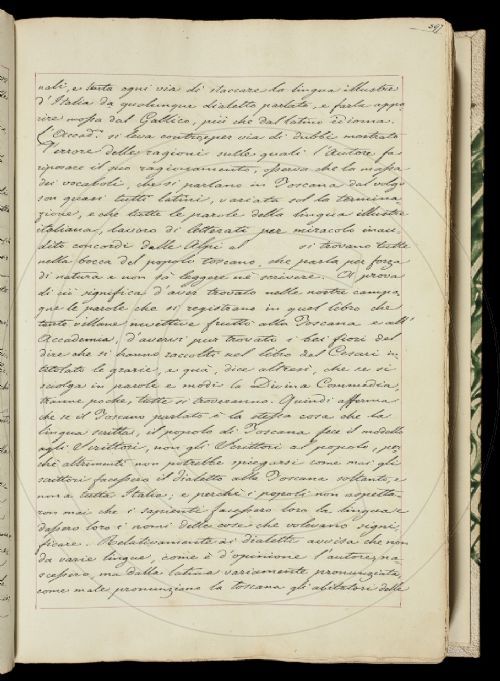 397
nali, e tenta ogni via di staccare la lingua illustre
d'Italia da qualunque dialetto parlato, e farla appa
rire mossa dal Gallico, più che dal latino idioma.
L'Accad.<sup>o</sup> si leva contro, e per via di dubbi mostrato
l'errore delle ragioni sulle quali l'Autore fa
riposare il suo ragionamento, osserva che la massa
dei vocaboli, che si parlano in Toscana dal volgo
son quasi tutti latini, variata sol la termina
zione, e che tutte le parole della lingua illustre
italiana, lavoro di letterati per miracolo inau
dito concordi dalle Alpi al si trovano tutte
nella bocca del popolo toscano, che parla per forza
di natura e non sa leggere nè scrivere. A prova
di ciò significa d'aver trovato nelle nostre campa,
gne le parole che si registrano in quel libro che
tante villane invettive fruttò alla Toscana e all'
Accademia d'avervi pur trovato i bei fiori del
dire che si hanno raccolti nel libro del Cesari in,
titolato le grazie, e qui, dice altresì, che se si
sciolga in parole e modi la Divina Commedia,
tranne poche, tutte si troveranno. Quindi afferma
che se il Toscano parlato è la stessa cosa che la
lingua scritta, il popolo di Toscana fece il modello
agli Scrittori, non gli Scrittori al popolo, per,
chè altrimenti non potrebbe spiegarsi come mai gli
scrittori facessero il dialetto alla Toscana soltanto, e
non a tutta Italia; e perchè i popoli non aspetta
ron mai che i sapienti facessero loro la lingua e
dassero loro i nomi delle cose che volevano signi
ficare. Relativamente ai dialetti avvisa che non
da varie lingue, come è d'opinione l'autore, na
scessero, ma dalla latina variamente pronunziata,
come male pronunziano la toscana gli abitatori delle